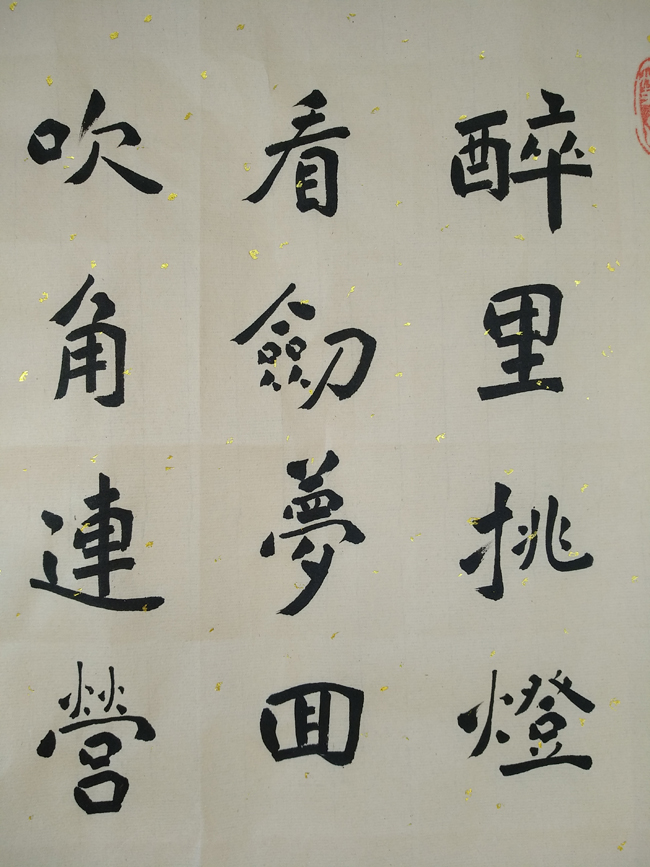 醉里挑燈
看劒夢囬
吹角連營